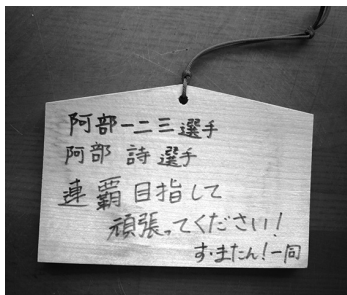 阿部一二三選手
阿部 詩 選手
連覇目指して
頑張ってください!
す・またん!一同